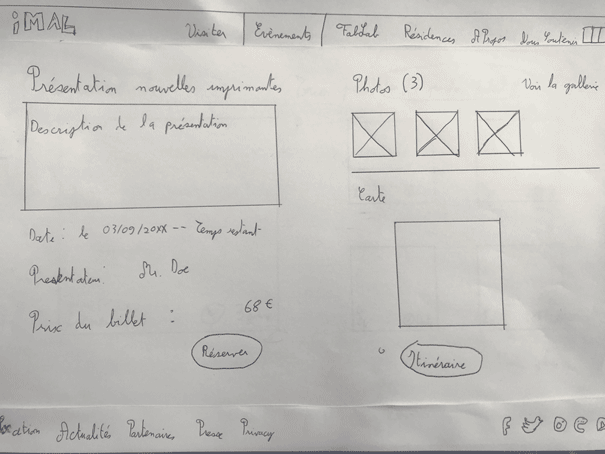 iMAL
Visiter Evènements FabLab Résidences A Propos Nous Soutenir
Présentation nouvelles imprimantes
Description de la présentation
Date : le 03/09/20XX -- Temps restant
Presentateur: Mr. Doe
Prix du billet : 68 €
Réserver
Photos (3) Voir la gallerie
Carte
Itinéraire
Location Actualités Partenaires Presse Privacy